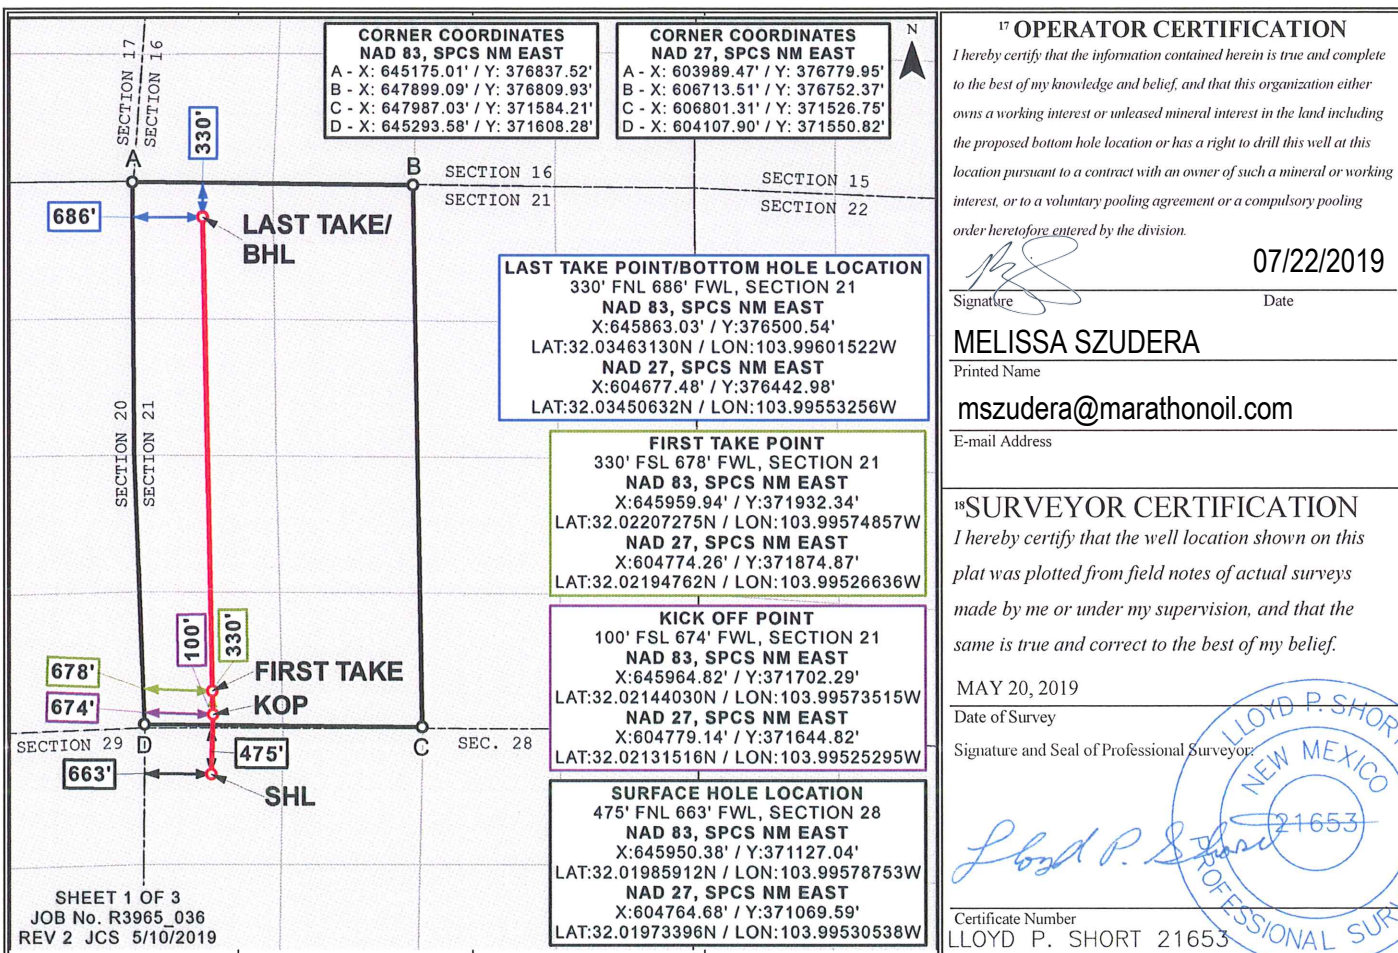 SECTION 17
SECTION 16
CORNER COORDINATES
NAD 83, SPCS NM EAST
A - X: 645175.01' / Y: 376837.52'
B - X: 647899.09' / Y: 376809.93'
C - X: 647987.03' / Y: 371584.21'
D - X: 645293.58' / Y: 371608.28'
CORNER COORDINATES
NAD 27, SPCS NM EAST
A - X: 603989.47' / Y: 376779.95'
B - X: 606713.51' / Y: 376752.37'
C - X: 606801.31' / Y: 371526.75'
D - X: 604107.90' / Y: 371550.82'
N
330'
A
B
SECTION 16
SECTION 21
SECTION 15
SECTION 22
686'
LAST TAKE/
BHL
LAST TAKE POINT/BOTTOM HOLE LOCATION
330' FNL 686' FWL, SECTION 21
NAD 83, SPCS NM EAST
X:645863.03' / Y:376500.54'
LAT:32.03463130N / LON:103.99601522W
NAD 27, SPCS NM EAST
X:604677.48' / Y:376442.98'
LAT:32.03450632N / LON:103.99553256W
SECTION 20
SECTION 21
FIRST TAKE POINT
330' FSL 678' FWL, SECTION 21
NAD 83, SPCS NM EAST
X:645959.94' / Y:371932.34'
LAT:32.02207275N / LON:103.99574857W
NAD 27, SPCS NM EAST
X:604774.26' / Y:371874.87'
LAT:32.02194762N / LON:103.99526636W
100'
330'
678'
674'
FIRST TAKE
KOP
KICK OFF POINT
100' FSL 674' FWL, SECTION 21
NAD 83, SPCS NM EAST
X:645964.82' / Y:371702.29'
LAT:32.02144030N / LON:103.99573515W
NAD 27, SPCS NM EAST
X:604779.14' / Y:371644.82'
LAT:32.02131516N / LON:103.99525295W
SECTION 29
D
C
SEC. 28
475'
663'
SHL
SURFACE HOLE LOCATION
475' FNL 663' FWL, SECTION 28
NAD 83, SPCS NM EAST
X:645950.38' / Y:371127.04'
LAT:32.01985912N / LON:103.99578753W
NAD 27, SPCS NM EAST
X:604764.68' / Y:371069.59'
LAT:32.01973396N / LON:103.99530538W
SHEET 1 OF 3
JOB No. R3965_036
REV 2 JCS 5/10/2019
17 OPERATOR CERTIFICATION
I hereby certify that the information contained herein is true and complete
to the best of my knowledge and belief, and that this organization either
owns a working interest or unleased mineral interest in the land including
the proposed bottom hole location or has a right to drill this well at this
location pursuant to a contract with an owner of such a mineral or working
interest, or to a voluntary pooling agreement or a compulsory pooling
order heretofore entered by the division.
07/22/2019
Signature Date
MELISSA SZUDERA
Printed Name
mszudera@marathonoil.com
E-mail Address
18SURVEYOR CERTIFICATION
I hereby certify that the well location shown on this
plat was plotted from field notes of actual surveys
made by me or under my supervision, and that the
same is true and correct to the best of my belief.
MAY 20, 2019
Date of Survey
Signature and Seal of Professional Surveyor:
LLOYD P. SHORT
NEW MEXICO
21653
PROFESSIONAL SURV
Lloyd P. Short
Certificate Number
LLOYD P. SHORT 21653